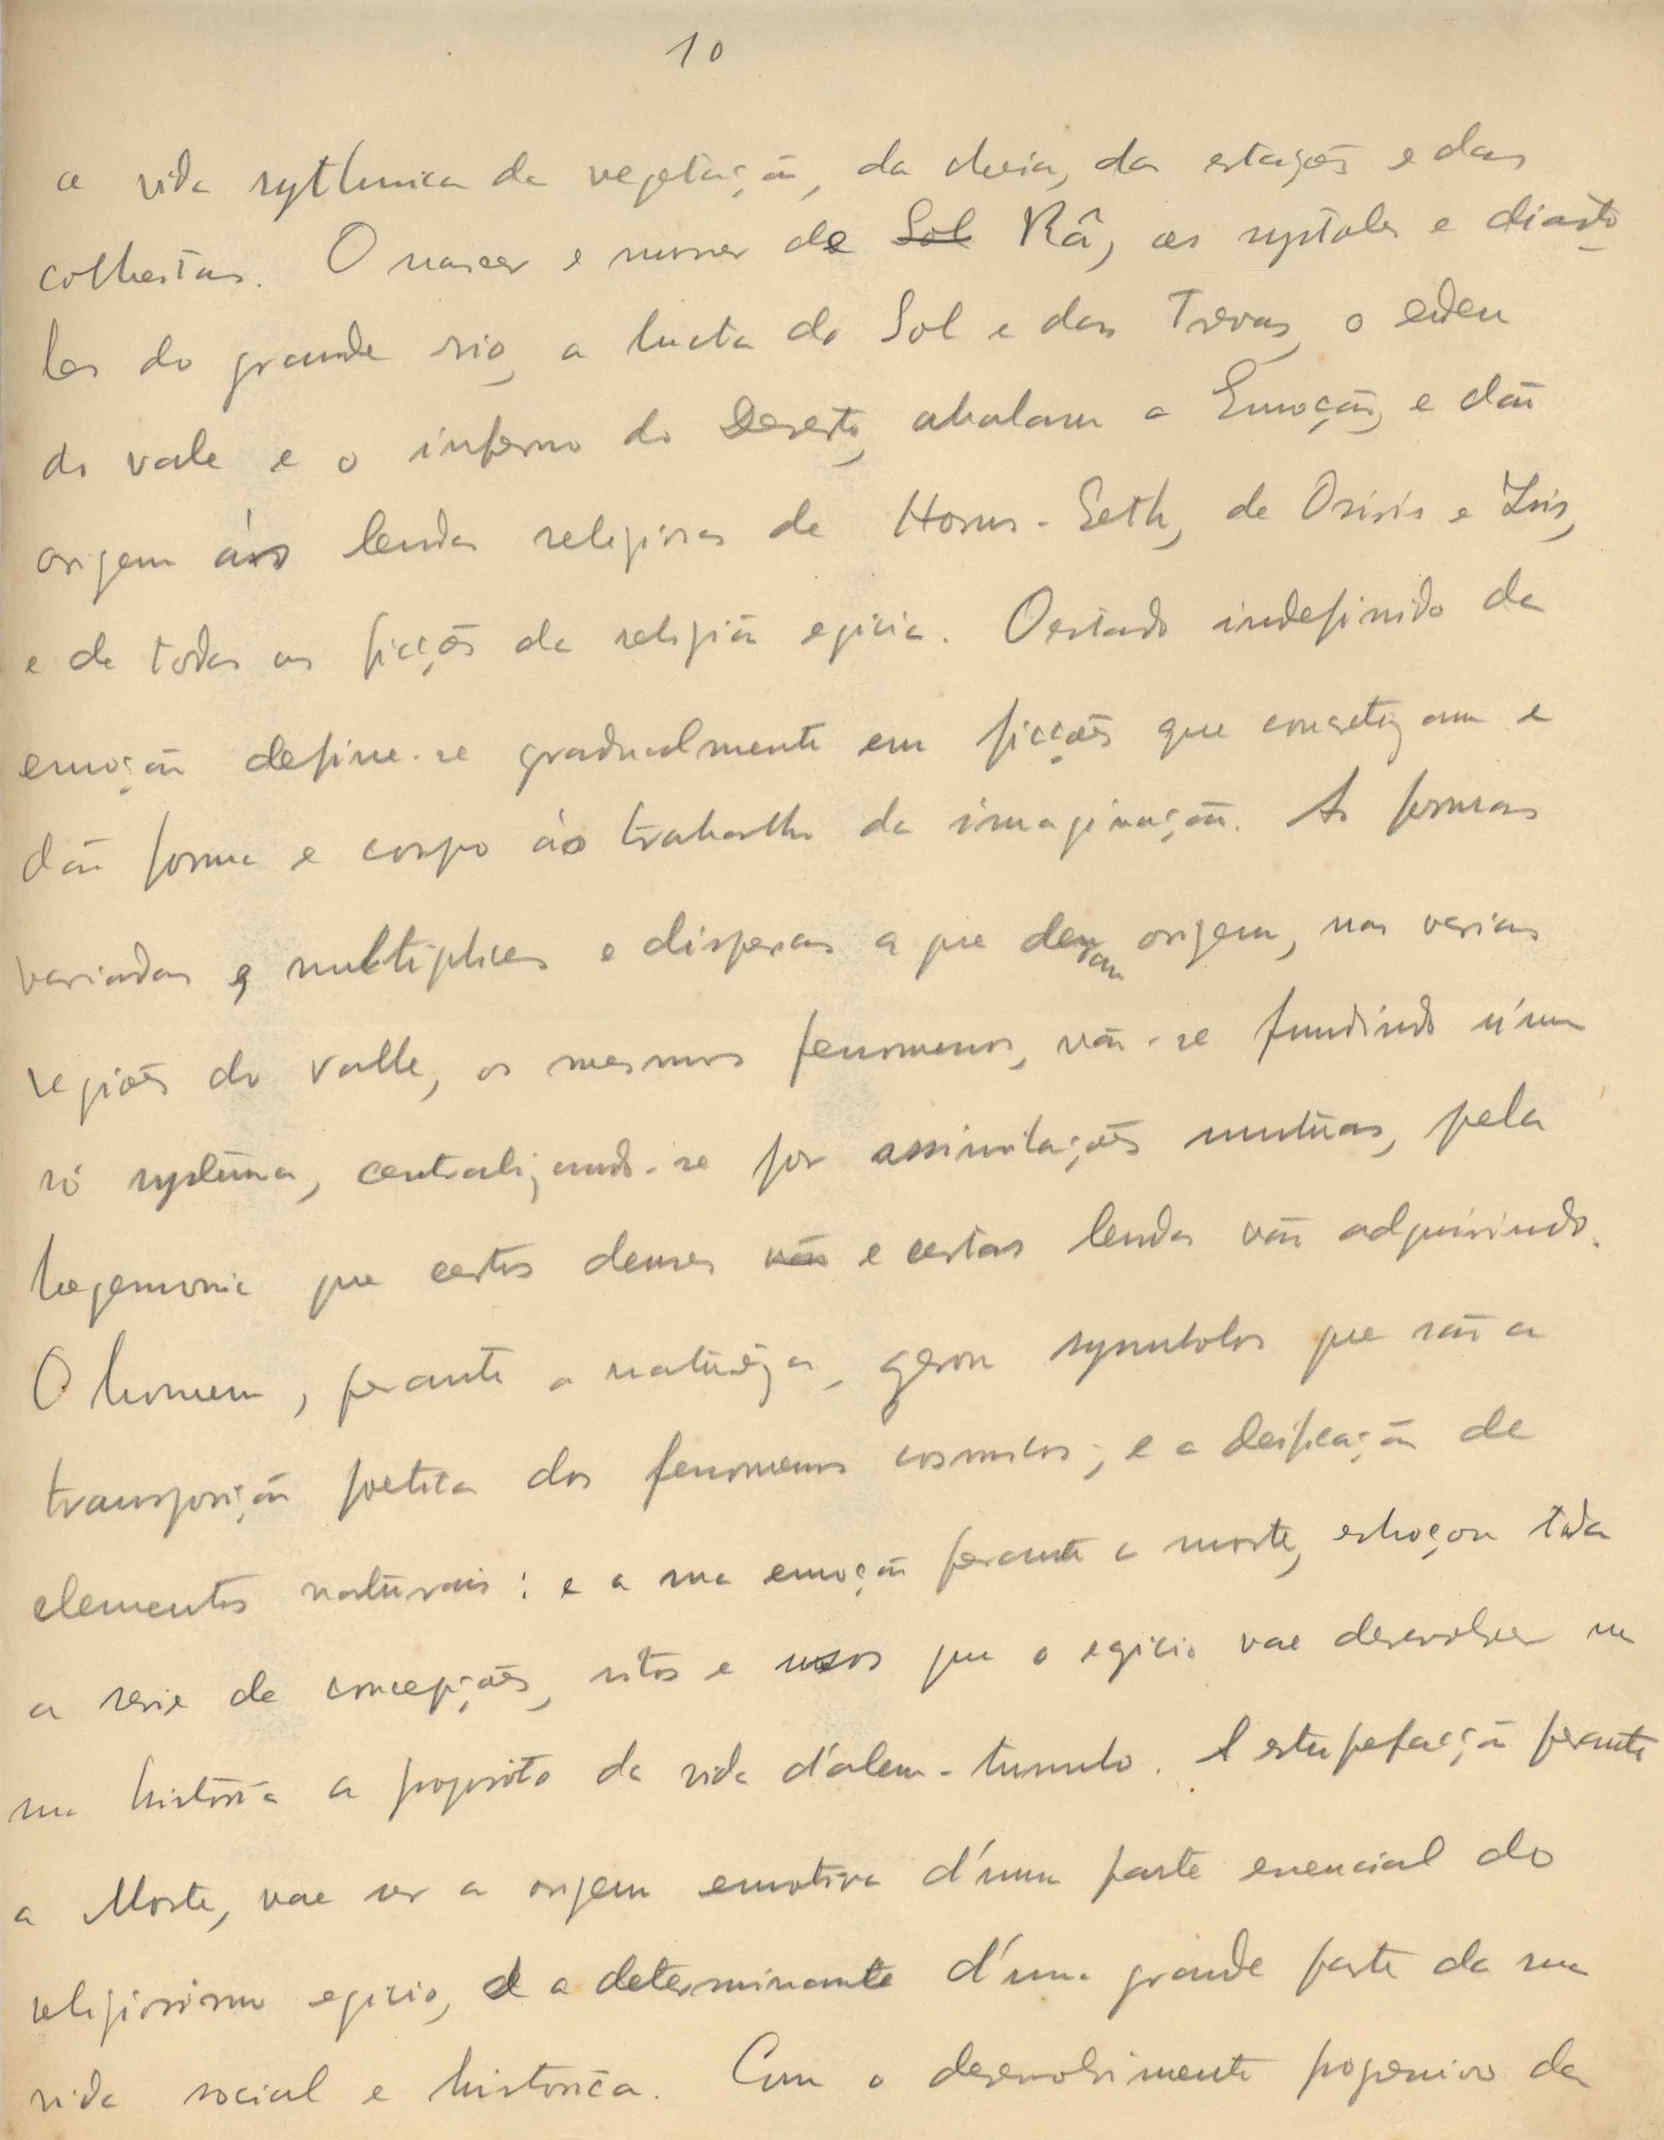 10
a vida rythmica da vegetação, da cheia, das estações e das
colheitas. O nascer e morrer de Sol Râ, as systoles e diasto
les do grande rio, a lucta do Sol e das Trevas, o eden
do vale e o inferno do Deserto, abalam a Emoção, e dão
origem ás lendas religiosas de Horus-Seth, de Osiris e Isis,
e de todas as ficções da religião egicia. O estado indefinido da
emoção define-se gradualmente em ficções que concretizam e
dão forma e corpo ao trabalho da imaginação. As formas
variadas e multiplices e dispersas a que deram origem, nas varias
regiões do valle, os mesmos fenomenos, vão-se fundindo n'um
só systema, centralizando-se por assimilações mutuas, pela
hegemonia que certos deuses vão e certas lendas vão adquirindo.
O homem, perante a natureza, gerou symbolos que são a
transposição poetica dos fenomenos cosmicos; e a deificação de
elementos naturais: e a sua emoção perante a morte, esboçou toda
a serie de concepções, ritos e usos que o egicio vae desenvolver na
sua historia a proposito da vida d'alem-tumulo. A estupefacção perante
a Morte, vae ser a origem emotiva d'uma parte esencial do
religiosismo egicio, e a determinante d'uma grande parte da sua
vida social e historica. Com o desenvolvimento progressivo da